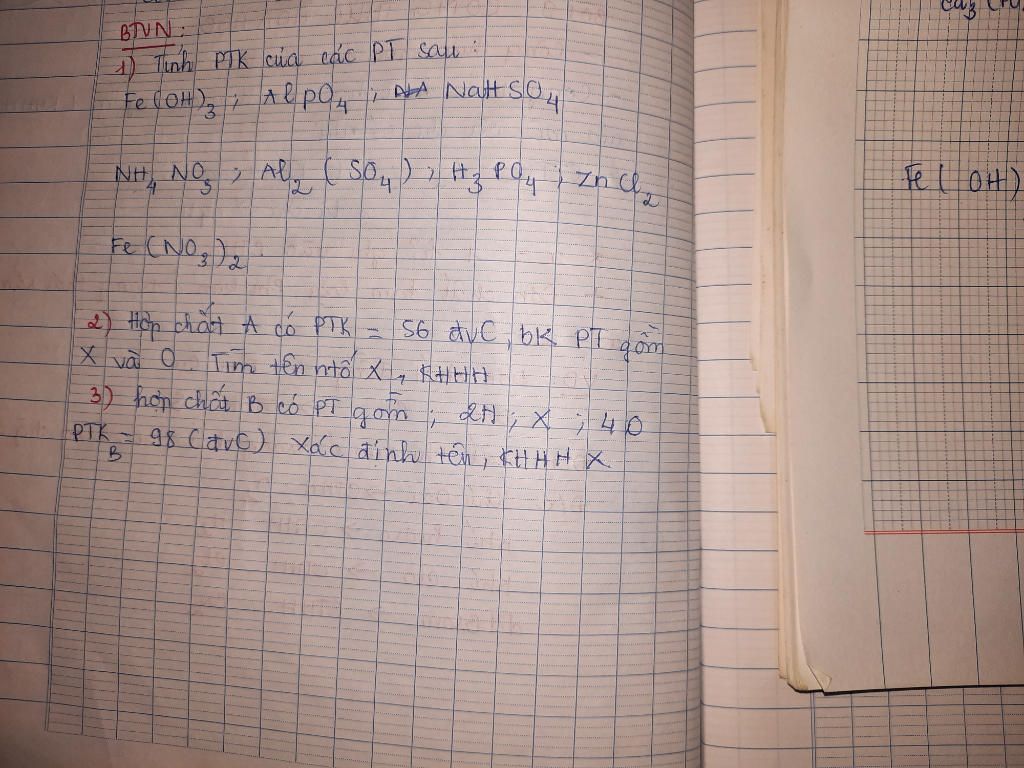 BTVN:
1) Tính PTK của các PT sau:
Fe(OH)₃ ; AlPO₄ ; NaHSO₄
NH₄ NO₃ ; Al₂ (SO₄) ; H₃PO₄ ; ZnCl₂
Fe(NO₃)₂
2) Hợp chất A có PTK = 56 đvC, bk PT gồm
X và O. Tìm tên ntố X, KHHH
3) hợp chất B có PT gồm ; 2H ; X ; 4O
PTK_B = 98 (đvC) xác định tên, KHHH X
Fe( OH)